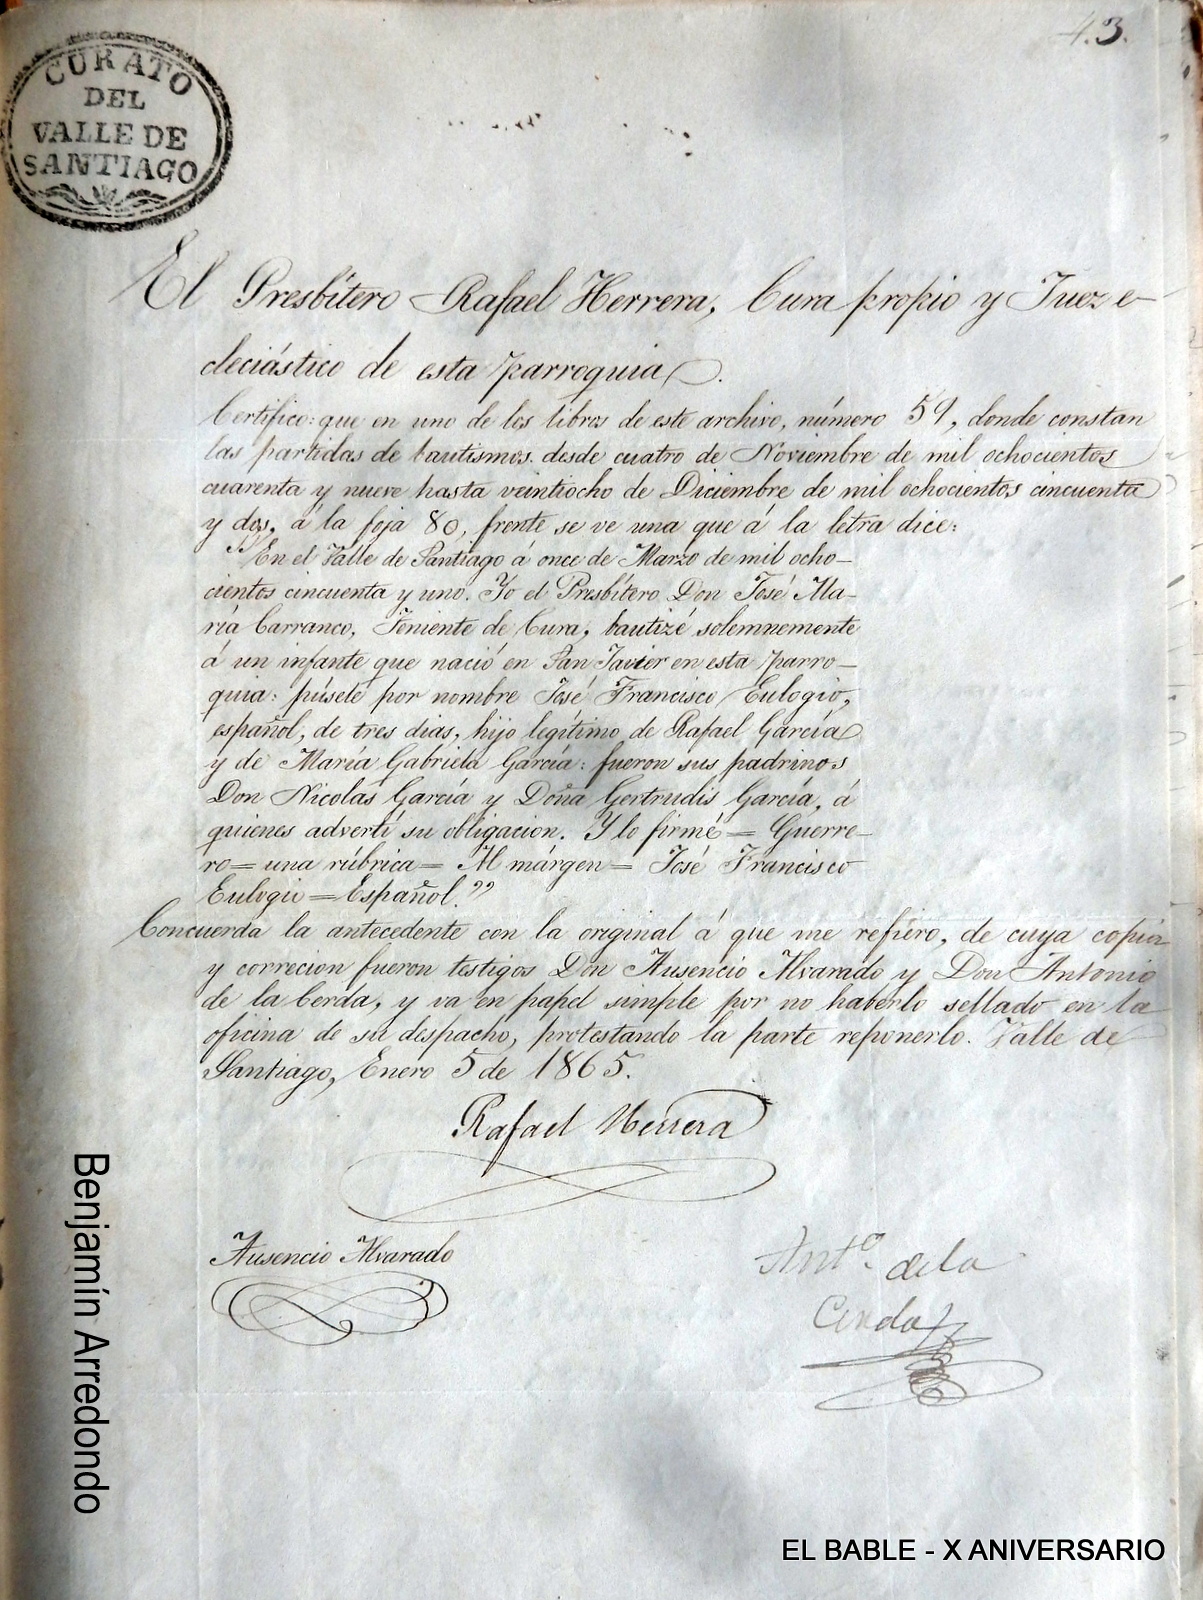 43.
CURATO
DEL
VALLE DE
SANTIAGO
El Presbítero Rafael Herrera, Cura propio y Juez e-
cleciástico de esta parroquia.
Certifico: que en uno de los libros de este archivo, número 59, donde constan
las partidas de bautismos desde cuatro de Noviembre de mil ochocientos
cuarenta y nueve hasta veintiocho de Diciembre de mil ochocientos cincuenta
y dos, á la foja 80, frente, se ve una que á la letra dice:
"En el Valle de Santiago a once de Marzo de mil ocho-
cientos cincuenta y uno. Yo el Presbítero Don José Ma-
ría Carranco, Teniente de Cura, bautizé solemnemente
á un infante que nació en San Javier en esta parro-
quia: púsele por nombre José Francisco Eulogio,
español, de tres dias, hijo legítimo de Rafael García
y de María Gabriela García: fueron sus padrinos
Don Nicolás García y Doña Gertrudis García, á
quienes advertí su obligacion. Y lo firmé = Guerre-
ro = una rúbrica = Al márgen = José Francisco
Eulogio = Español."
Concuerda la antecedente con la original á que me refiero, de cuya copia
y correcion fueron testigos Don Ausencio Alvarado y Don Antonio
de la Cerda, y va en papel simple por no haberlo sellado en la
oficina de su despacho, protestando la parte reponerlo. Valle de
Santiago, Enero 5 de 1865.
Rafael Herrera
Ausencio Alvarado
Ant.º de la
Cerda
Benjamín Arredondo
EL BABLE - X ANIVERSARIO